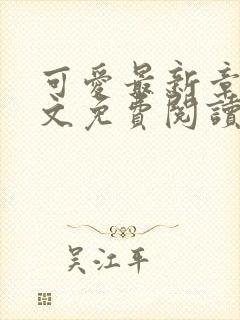 可愛最新章
文免費閱讀
吴江平